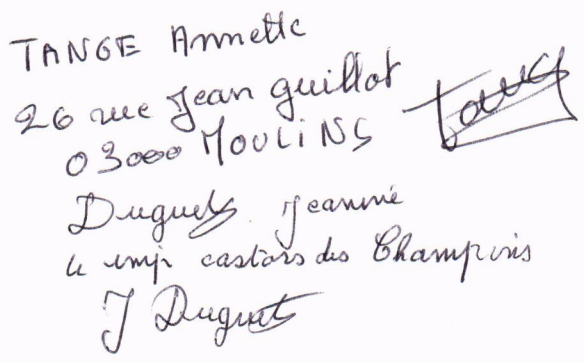 TANGE Annette
26 rue Jean Guillot
03000 MOULINS
Duguet Jeannine
castors des Champins
J Duguet